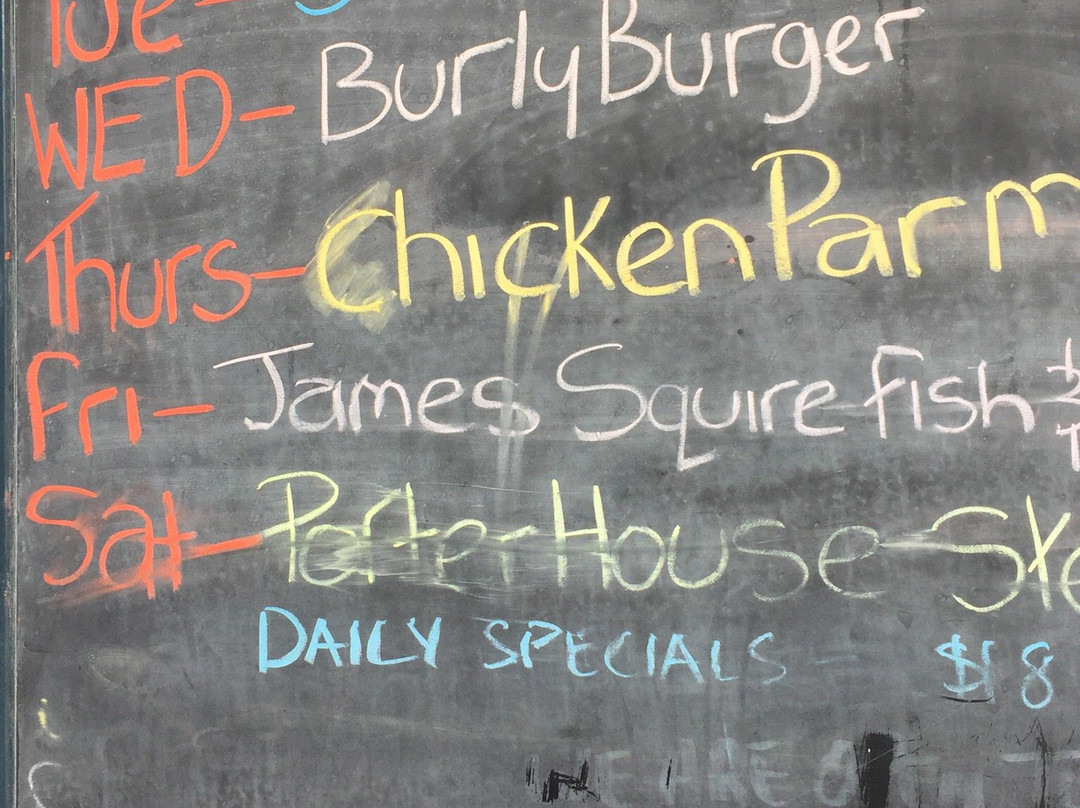 Tue -
WED - Burly Burger
Thurs - Chicken Parm
Fri - James Squire Fish
Sat - Porter House Ste
DAILY SPECIALS - $18
WE ARE